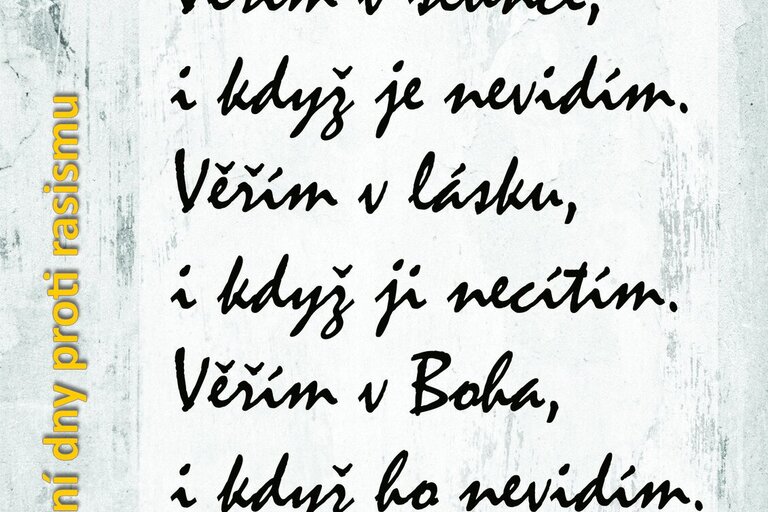 Věřím v slunce,
i když je nevidím.
Věřím v lásku,
i když ji necítím.
Věřím v Boha,
i když ho nevidím.
ní dny proti rasismu